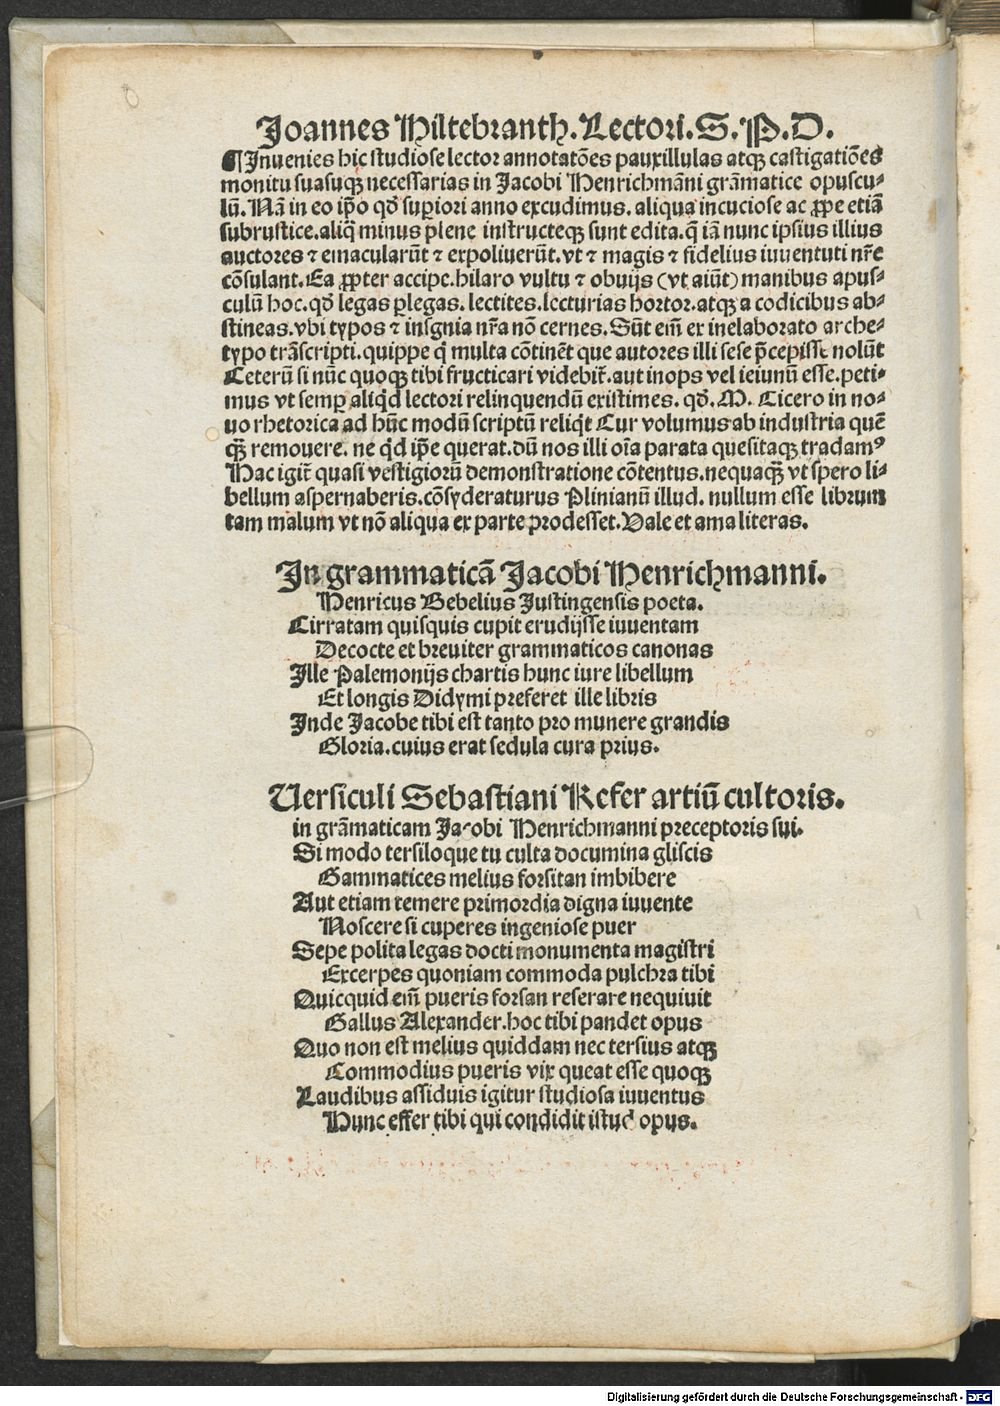 Joannes Hiltebranth. Lectori. S. P. D.
¶ Inuenies hic studiose lector annotatões pauxillulas atqꝫ castigatiões
monitu suasuqꝫ necessarias in Jacobi Henrichmãni grãmatice opuscu-
lũ. Nã in eo ip̃o qď suꝑiori anno excudimus. aliqua incuciose ac ꝓpe etiã
subrustice. aliq̃ minus plene instructeqꝫ sunt edita. q̃ iã nunc ipsius illius
auctores ⁊ emacularũt ⁊ expoliuerũt. vt ⁊ magis ⁊ fidelius iuuentuti nr̃e
cõsulant. Ea ꝓpter accipe. hilaro vultu ⁊ obuijs (vt aiũt) manibus apus-
culũ hoc. qď legas ꝑlegas. lectites. lecturias hortor. atqꝫ a codicibus ab-
stineas. vbi typos ⁊ insgnia nr̃a nõ cernes. Sũt em̃ ex inelaborato arche-
typo trãscripti. quippe q̃ multa cõtinẽt que autores illi sese p̃cepisse nolũt
Ceterũ si nũc quoqꝫ tibi fructicari videbit̃. aut inops vel ieiunũ esse. peti-
mus vt semꝑ aliq̃d lectori relinquendũ existimes. qď. M. Cicero in no-
uo rhetorica ad hũc modũ scriptũ reliq̃t Cur volumus ab industria quẽ
qꝫ̃ remouere. ne q̃d ip̃e querat. dũ nos illi oĩa parata quesitaqꝫ tradamꝰ
Hac igit̃ quasi vestigiorũ demonstratione cõtentus. nequaqꝫ̃ vt spero li-
bellum aspernaberis. cõsyderaturus Plinianũ illud. nullum esse librum
tam malum vt nõ aliqua ex parte prodesset. Vale et ama literas.
In grammaticã Jacobi Henrichmanni.
Henricus Bebelius Justingensis poeta.
Cirratam quisquis cupit erudijsse iuuentam
Decocte et breuiter grammaticos canonas
Ille Palemonijs chartis hunc iure libellum
Et longis Didymi preferet ille libris
Inde Jacobe tibi est tanto pro munere grandis
Gloria. cuius erat sedula cura prius.
Uersiculi Sebastiani Kefer artiũ cultoris.
in grãmaticam Jacobi Henrichmanni preceptoris sui.
Si modo tersiloque tu culta documina gliscis
Gammatices melius forsitan imbibere
Aut etiam temere primordia digna iuuente
Noscere si cuperes ingeniose puer
Sepe polita legas docti monumenta magistri
Excerpes quoniam commoda pulchra tibi
Quicquid em̃ pueris forsan reserare nequiuit
Gallus Alexander. hoc tibi pandet opus
Quo non est melius quiddam nec tersius atqꝫ
Commodius pueris vix queat esse quoqꝫ
Laudibus assiduis igitur studiosa iuuentus
Hunc effer tibi qui condidit istud opus.
Digitalisierung gefördert durch die Deutsche Forschungsgemeinschaft - DFG